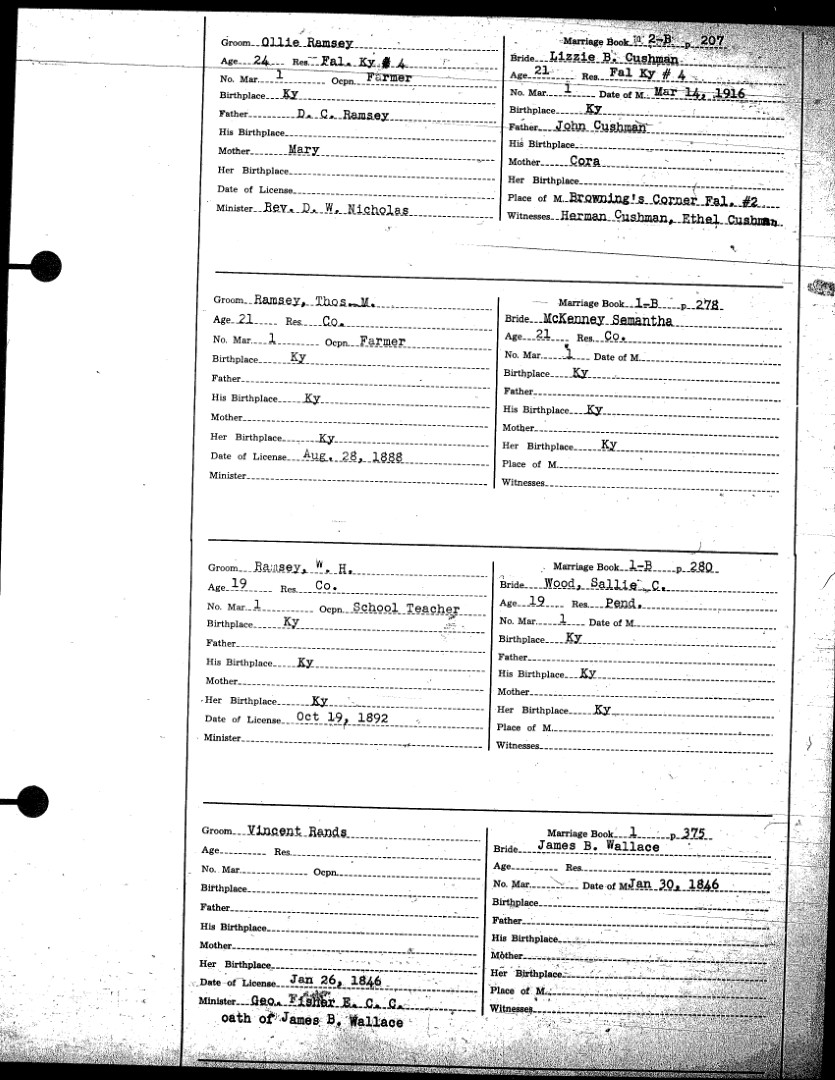 Groom Ollie Ramsey
Age 24 Res Fal. Ky # 4
No. Mar. 1 Ocpn. Farmer
Birthplace Ky
Father D. C. Ramsey
His Birthplace
Mother Mary
Her Birthplace
Date of License
Minister Rev. D. W. Nicholas
Marriage Book 2-B p. 207
Bride Lizzie B. Cushman
Age 21 Res. Fal Ky # 4
No. Mar. 1 Date of M. Mar 14, 1916
Birthplace Ky
Father John Cushman
His Birthplace
Mother Cora
Her Birthplace
Place of M. Browning's Corner Fal. #2
Witnesses Herman Cushman, Ethel Cushman
Groom Ramsey, Thos. M.
Age 21 Res. Co.
No. Mar. 1 Ocpn. Farmer
Birthplace Ky
Father
His Birthplace Ky
Mother
Her Birthplace Ky
Date of License Aug. 28, 1888
Minister
Marriage Book 1-B p. 278
Bride McKenney Semantha
Age 21 Res. Co.
No. Mar. 1 Date of M.
Birthplace Ky
Father
His Birthplace Ky
Mother
Her Birthplace Ky
Place of M.
Witnesses
Groom Ramsey, W. H.
Age 19 Res. Co.
No. Mar. 1 Ocpn. School Teacher
Birthplace Ky
Father
His Birthplace Ky
Mother
Her Birthplace Ky
Date of License Oct 19, 1892
Minister
Marriage Book 1-B p. 280
Bride Wood, Sallie C.
Age 19 Res. Pend.
No. Mar. 1 Date of M.
Birthplace Ky
Father
His Birthplace Ky
Mother
Her Birthplace Ky
Place of M.
Witnesses
Groom Vincent Rands
Age Res.
No. Mar. Ocpn.
Birthplace
Father
His Birthplace
Mother
Her Birthplace
Date of License Jan 26, 1846
Minister Geo. Fisher E. C. C.
oath of James B. Wallace
Marriage Book 1 p. 375
Bride James B. Wallace
Age Res.
No. Mar. Date of M. Jan 30, 1846
Birthplace
Father
His Birthplace
Mother
Her Birthplace
Place of M.
Witnesses